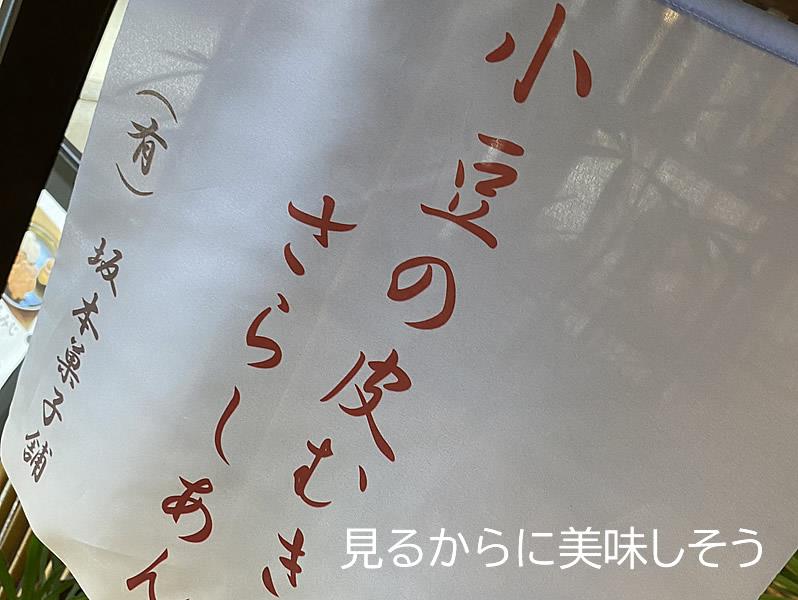 小豆の皮むき
さらしあん
(有)坂本菓子舗
見るからに美味しそう